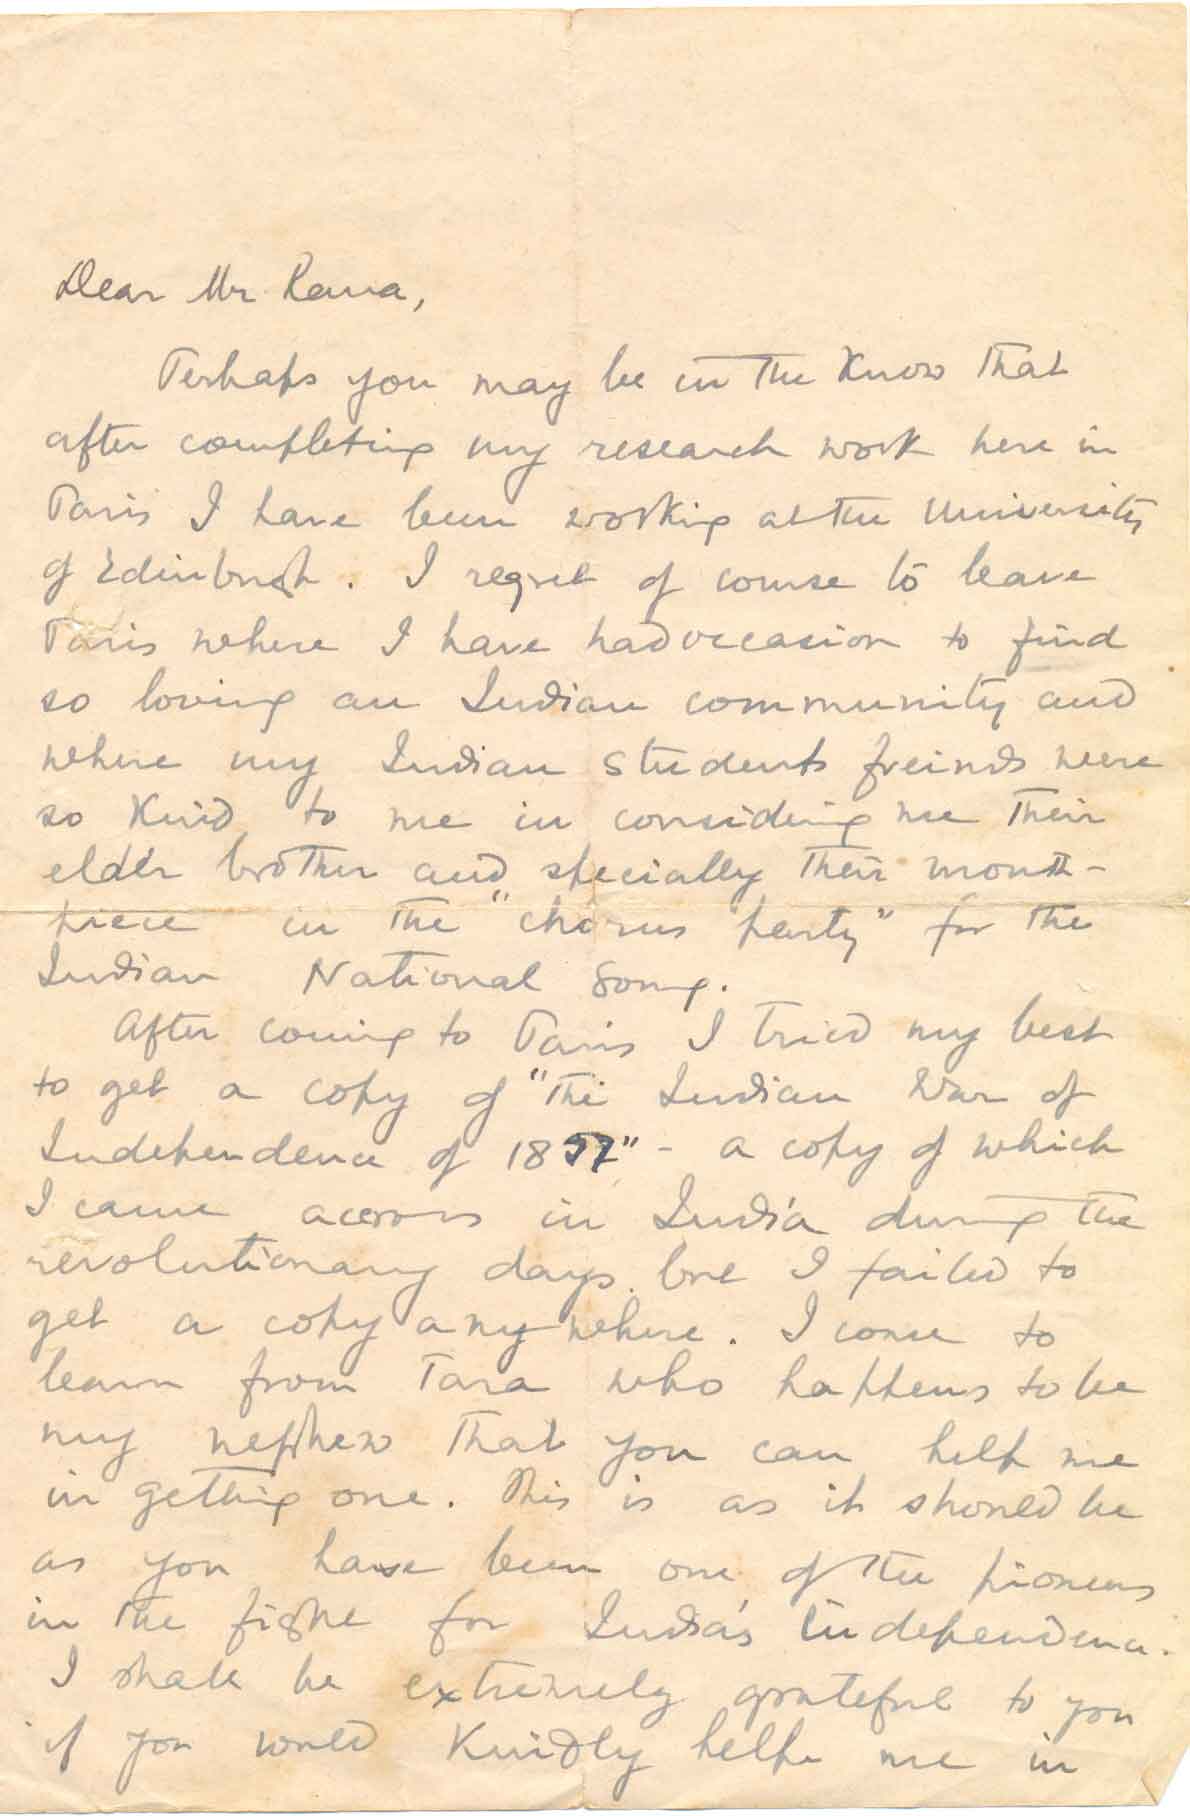 Dear Mr Rana,
Perhaps you may be in the know that
after completing my research work here in
Paris I have been working at the University
of Edinburgh. I regret of course to leave
Paris where I have had occasion to find
so loving an Indian community and
where my Indian students freinds were
so kind to me in considering me their
elder brother and specially their mouth-
piece in the "chorus party" for the
Indian National Song.
After coming to Paris I tried my best
to get a copy of "The Indian War of
Independence of 1857" - a copy of which
I came across in India during the
revolutionary days. but I failed to
get a copy any where. I come to
learn from Tara who happens to be
my nephew that you can help me
in getting one. This is as it should be
as you have been one of the pioneers
in the fight for India's independence.
I shall be extremely grateful to you
if you would kindly help me in